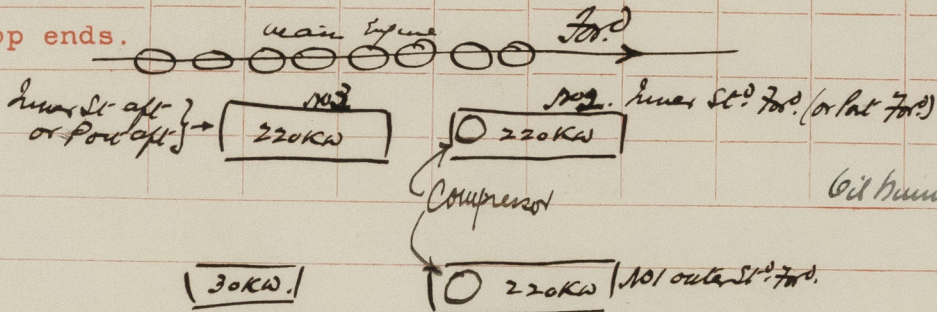 op ends.
main Engine
For'd
Inner St aft
or Port aft
No3
220KW
No2. Inner St'd For'd (or Port For'd)
220KW
Compressor
Oil
30KW.
220KW
No1 outer St'd For'd.